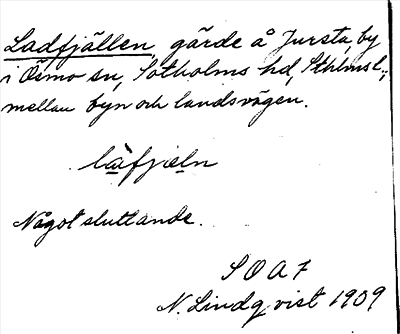 Ladfjällen, gärde å Jursta, by
i Ösmo sn, Sotholms hd, Sthlms l.,
mellan byn och landsvägen.
làfjeln
Något sluttande.
SOAF
N. Lindqvist 1909